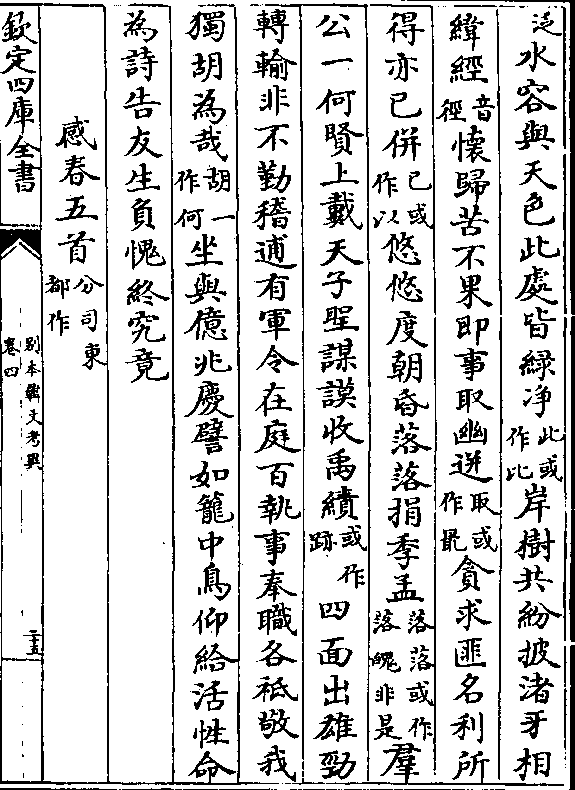 泛水容與天色此處皆綠淨此或作比岸樹共紛披渚牙相
緯經音徑懷歸苦不果即事取幽迸取或作最貪求匪名利所
得亦已併已或作以悠悠度朝昏落落捐季孟落落或作落魄非是羣
公一何賢上戴天子聖謀謨收禹績或作跡四面出雄勁
轉輸非不勤稽逋有軍令在庭百執事奉職各祗敬我
獨胡為哉胡一作何坐與億兆慶譬如籠中鳥仰給活性命
為詩告友生負愧終究竟
感春五首分司東都作
欽定四庫全書
別本韓文考異
卷四
二十五